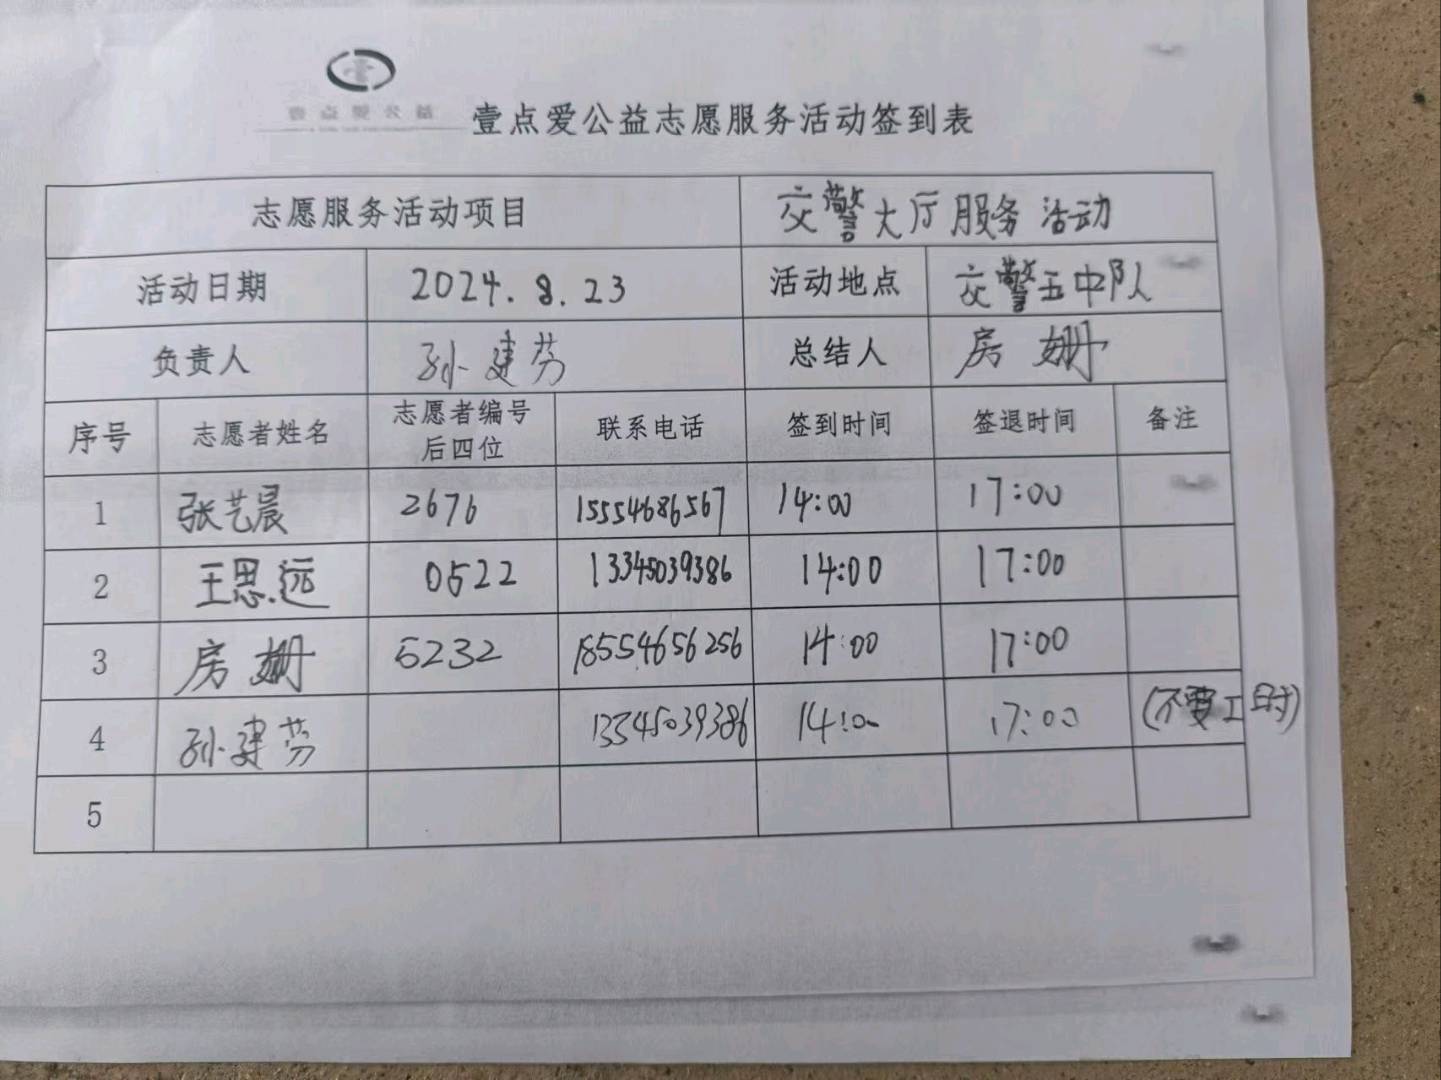 壹点爱公益
壹点爱公益志愿服务活动签到表
志愿服务活动项目 交警大厅服务活动
活动日期 2024.8.23 活动地点 交警五中队
负责人 孙建芬 总结人 房姗
序号 志愿者姓名 志愿者编号后四位 联系电话 签到时间 签退时间 备注
1 张艺晨 2676 15554686567 14:00 17:00
2 王思远 0522 13345039386 14:00 17:00
3 房姗 5232 18554656256 14:00 17:00
4 孙建芬 13345039386 14:00 17:00 (不要工时)
5